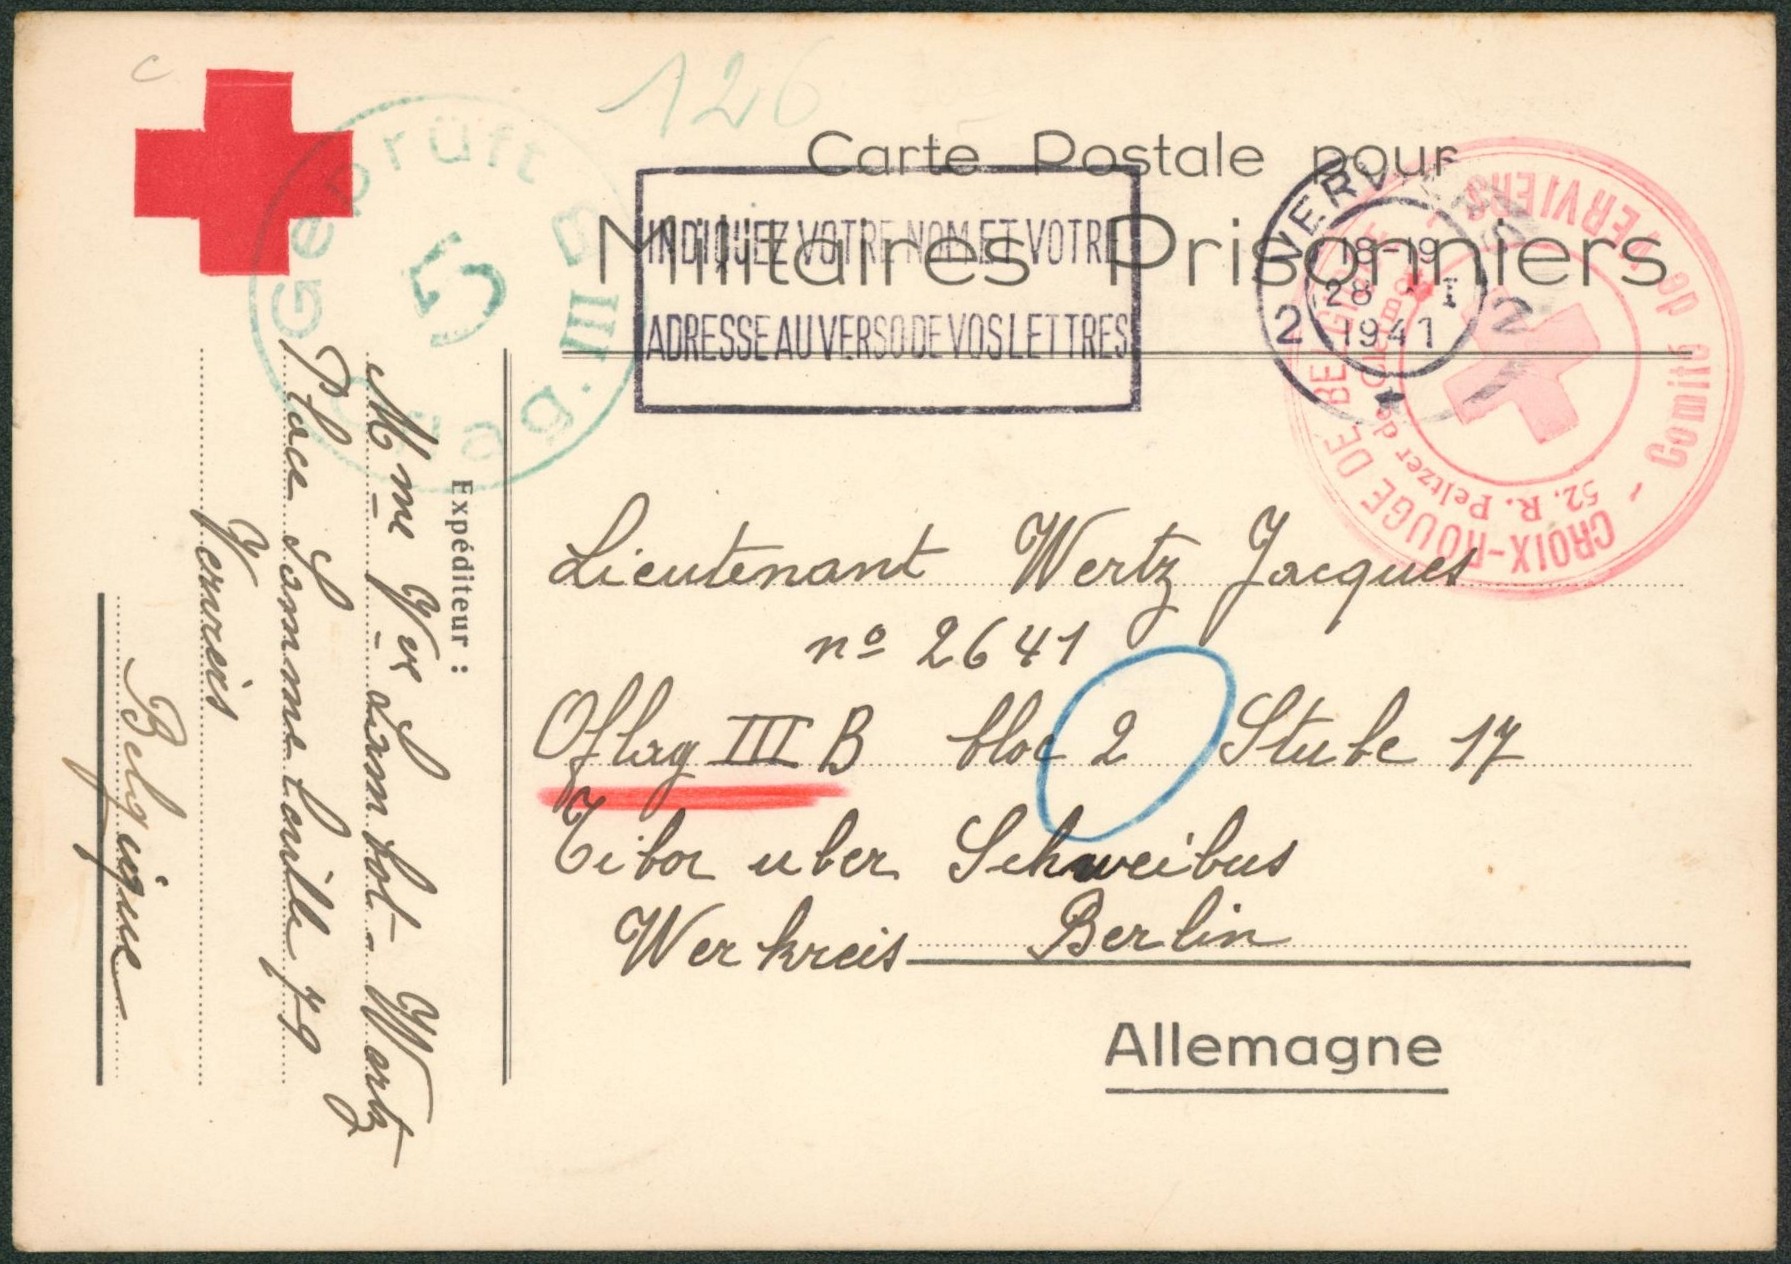 126
Carte Postale pour
Militaires Prisonniers
INDIQUEZ VOTRE NOM ET VOTRE
ADRESSE AU VERSO DE VOS LETTRES
VERVIERS
2 2
18-19
28 I
1941
CROIX-ROUGE DE BELGIQUE - Comité de VERVIERS -
52. R. Peltzer de
Geprüft
5
Oflag. III B
Lieutenant Wertz Jacques
nº 2641
Oflag III B bloc 2 Stube 17
Tibor uber Schweibus
Werkreis Berlin
Allemagne
Expéditeur :
Mme Vve Lambot-Wertz
Place Sommeleville 79
Verviers
Belgique